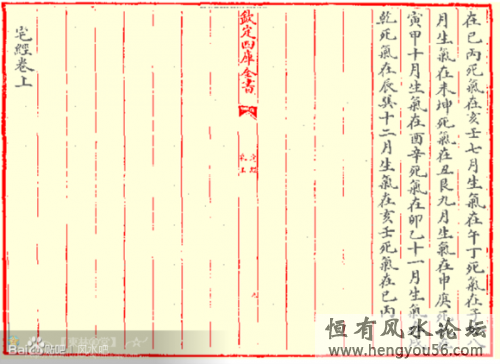 在巳丙死氣在亥壬七月生氣在午丁死氣在子八
月生氣在未坤死氣在丑艮九月生氣在申庚死
寅甲十月生氣在酉辛死氣在卯乙十一月生氣
乾死氣在辰巽十二月生氣在亥壬死氣在巳丙
欽定四庫全書
宅經
卷上
宅經卷上
Bai 贴吧 | 风水吧
恒有风水论坛
www.hengyou56.com